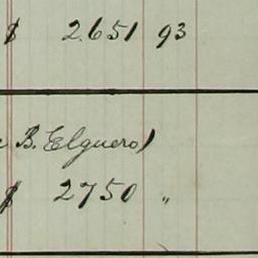 $ 2651 93
B. Elguero)
$ 2750 "